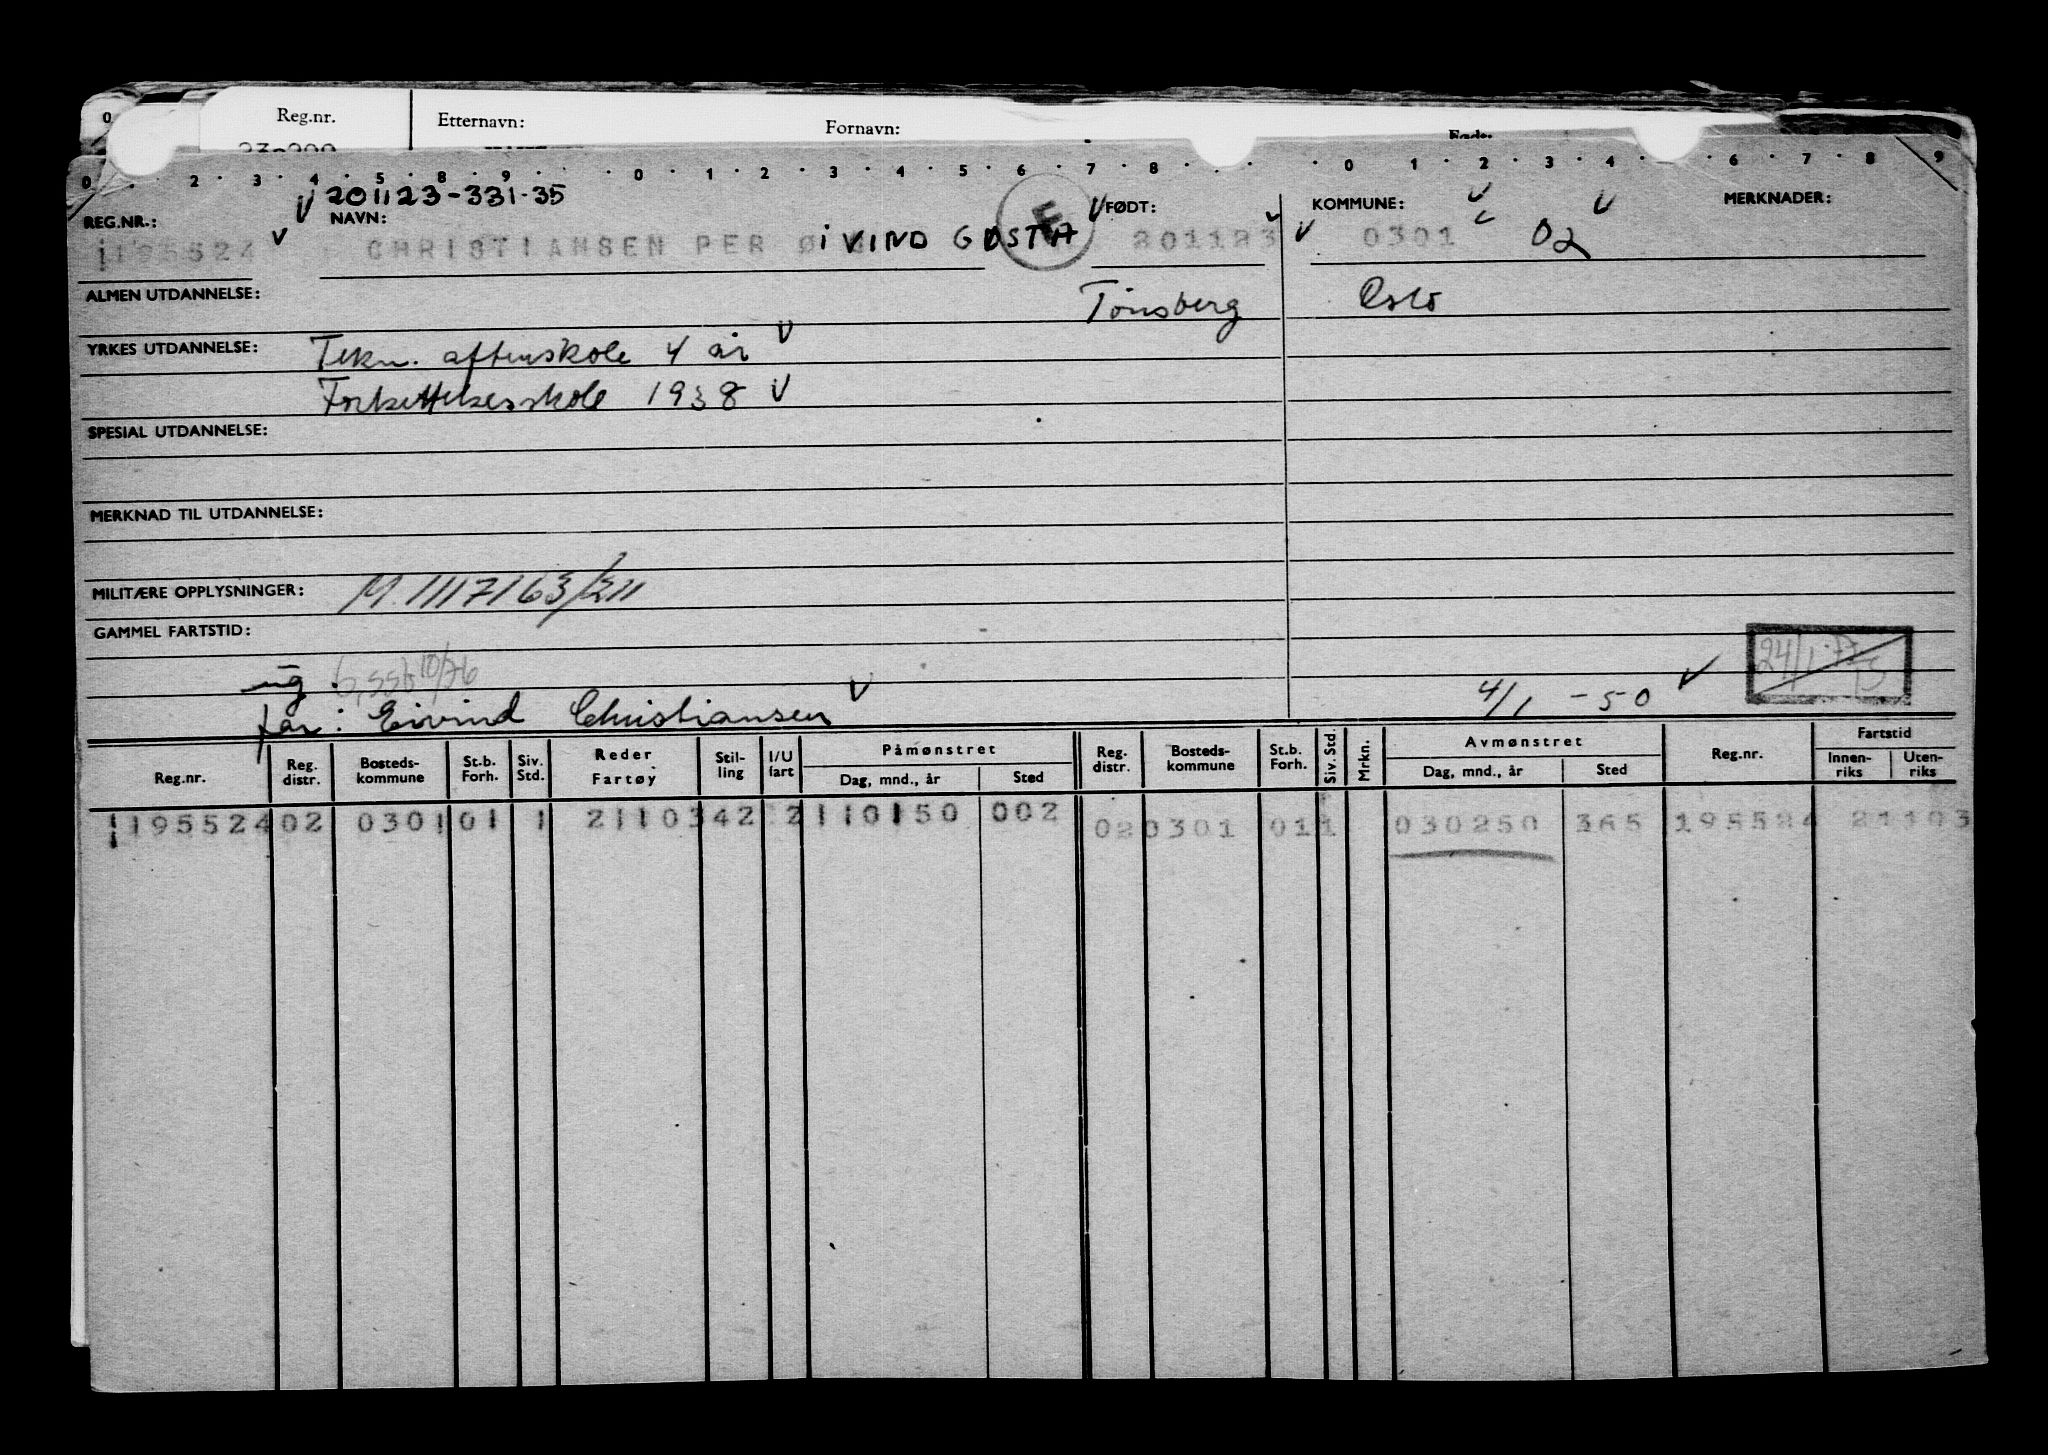 Reg.nr. Etternavn: Fornavn:
0 2 3 4 5 8 9 0 1 2 3 4 5 6 7 8 0 1 2 3 4 6 7 8 9
201123-331-35
REG.NR.: NAVN: FØDT: KOMMUNE: MERKNADER:
195524 CHRISTIANSEN PER ØIVIND GØSTA 201123 0301 02
ALMEN UTDANNELSE: Tønsberg Oslo
YRKES UTDANNELSE: Tekn. aftenskole 4 år
Fortsettelsesskole 1938
SPESIAL UTDANNELSE:
MERKNAD TIL UTDANNELSE:
MILITÆRE OPPLYSNINGER: M.1117163/211
GAMMEL FARTSTID:
ug.
far: Eivind Christiansen 4/1 -50
Reg.nr. Reg. distr. Bosteds-kommune St.b. Forh. Siv. Std. Reder Fartøy Stil-ling I/U fart Påmønstret Dag, mnd., år Sted Reg. distr. Bosteds-kommune St.b. Forh. Siv. Std. Mrkn. Avmønstret Dag, mnd., år Sted Reg.nr. Fartstid Innen-riks Uten-riks
195524 02 0301 01 1 21103 42 2 110150 002 02 0301 01 1 030250 365 195524 21103